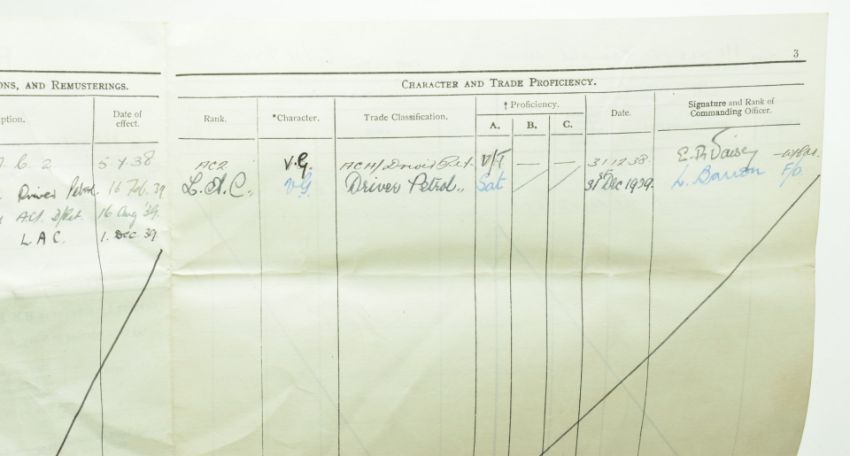 3
ONS, AND REMUSTERINGS.
CHARACTER AND TRADE PROFICIENCY.
ption. Date of effect. Rank. *Character. Trade Classification. † Proficiency. A. B. C. Date. Signature and Rank of Commanding Officer.
C 2 5 7 38 AC2 V.G. — — 31 12 38
Driver Petrol. 16 Feb. 39 L.A.C. VG Driver Petrol Sat 31st Dec 1939. L. Barron F/O
AC1 D/Pet. 16 Aug '39.
LAC. 1. Dec 39.